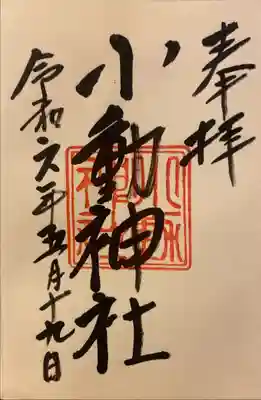 奉拝
小動神社
令和六年五月十九日